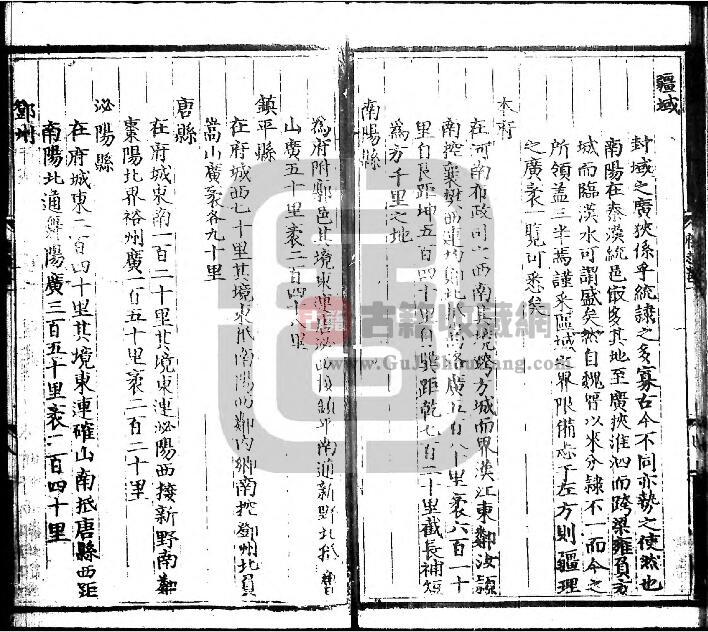 疆域
封域之廣狹係乎統隷之多寡古今不同亦勢之使然也
南陽在秦漢統邑㝡多其地至廣挾淮泗而跨梁雍負方
城而臨漢水可謂盛矣然自魏晉以來分隷不一而今之
所領盖三半焉謹采區域 界限備志于左方則疆理
之廣袤一覽可悉矣
本府
在河南布政司之西南其境跨方城而界漢江東鄰汝潁
南控襄樊西連均 北 廣五百八十里袤六百一十
里自艮距坤五百四十里自巽距乾七百二十里截長補短
爲方千里之地
南陽縣
爲府附郭邑其境東連 泌西接鎮平南通新野北抵
山廣五十里袤二百四 八里
鎮平縣
在府城西七十里其境東抵南陽西鄰内鄉南控鄧州北負
嵩山廣袤各九十里
唐縣
在府城東南一百二十里其境東連泌陽西接新野南鄰
棗陽北界裕州廣一百五十里袤一百二十里
泌陽縣
在府城東二百四十里其境東連確山南抵唐縣西距
南陽北通舞陽廣三百五十里袤二百四十里
鄧州
古籍 古籍收藏網
www.GuJiShouCang.com